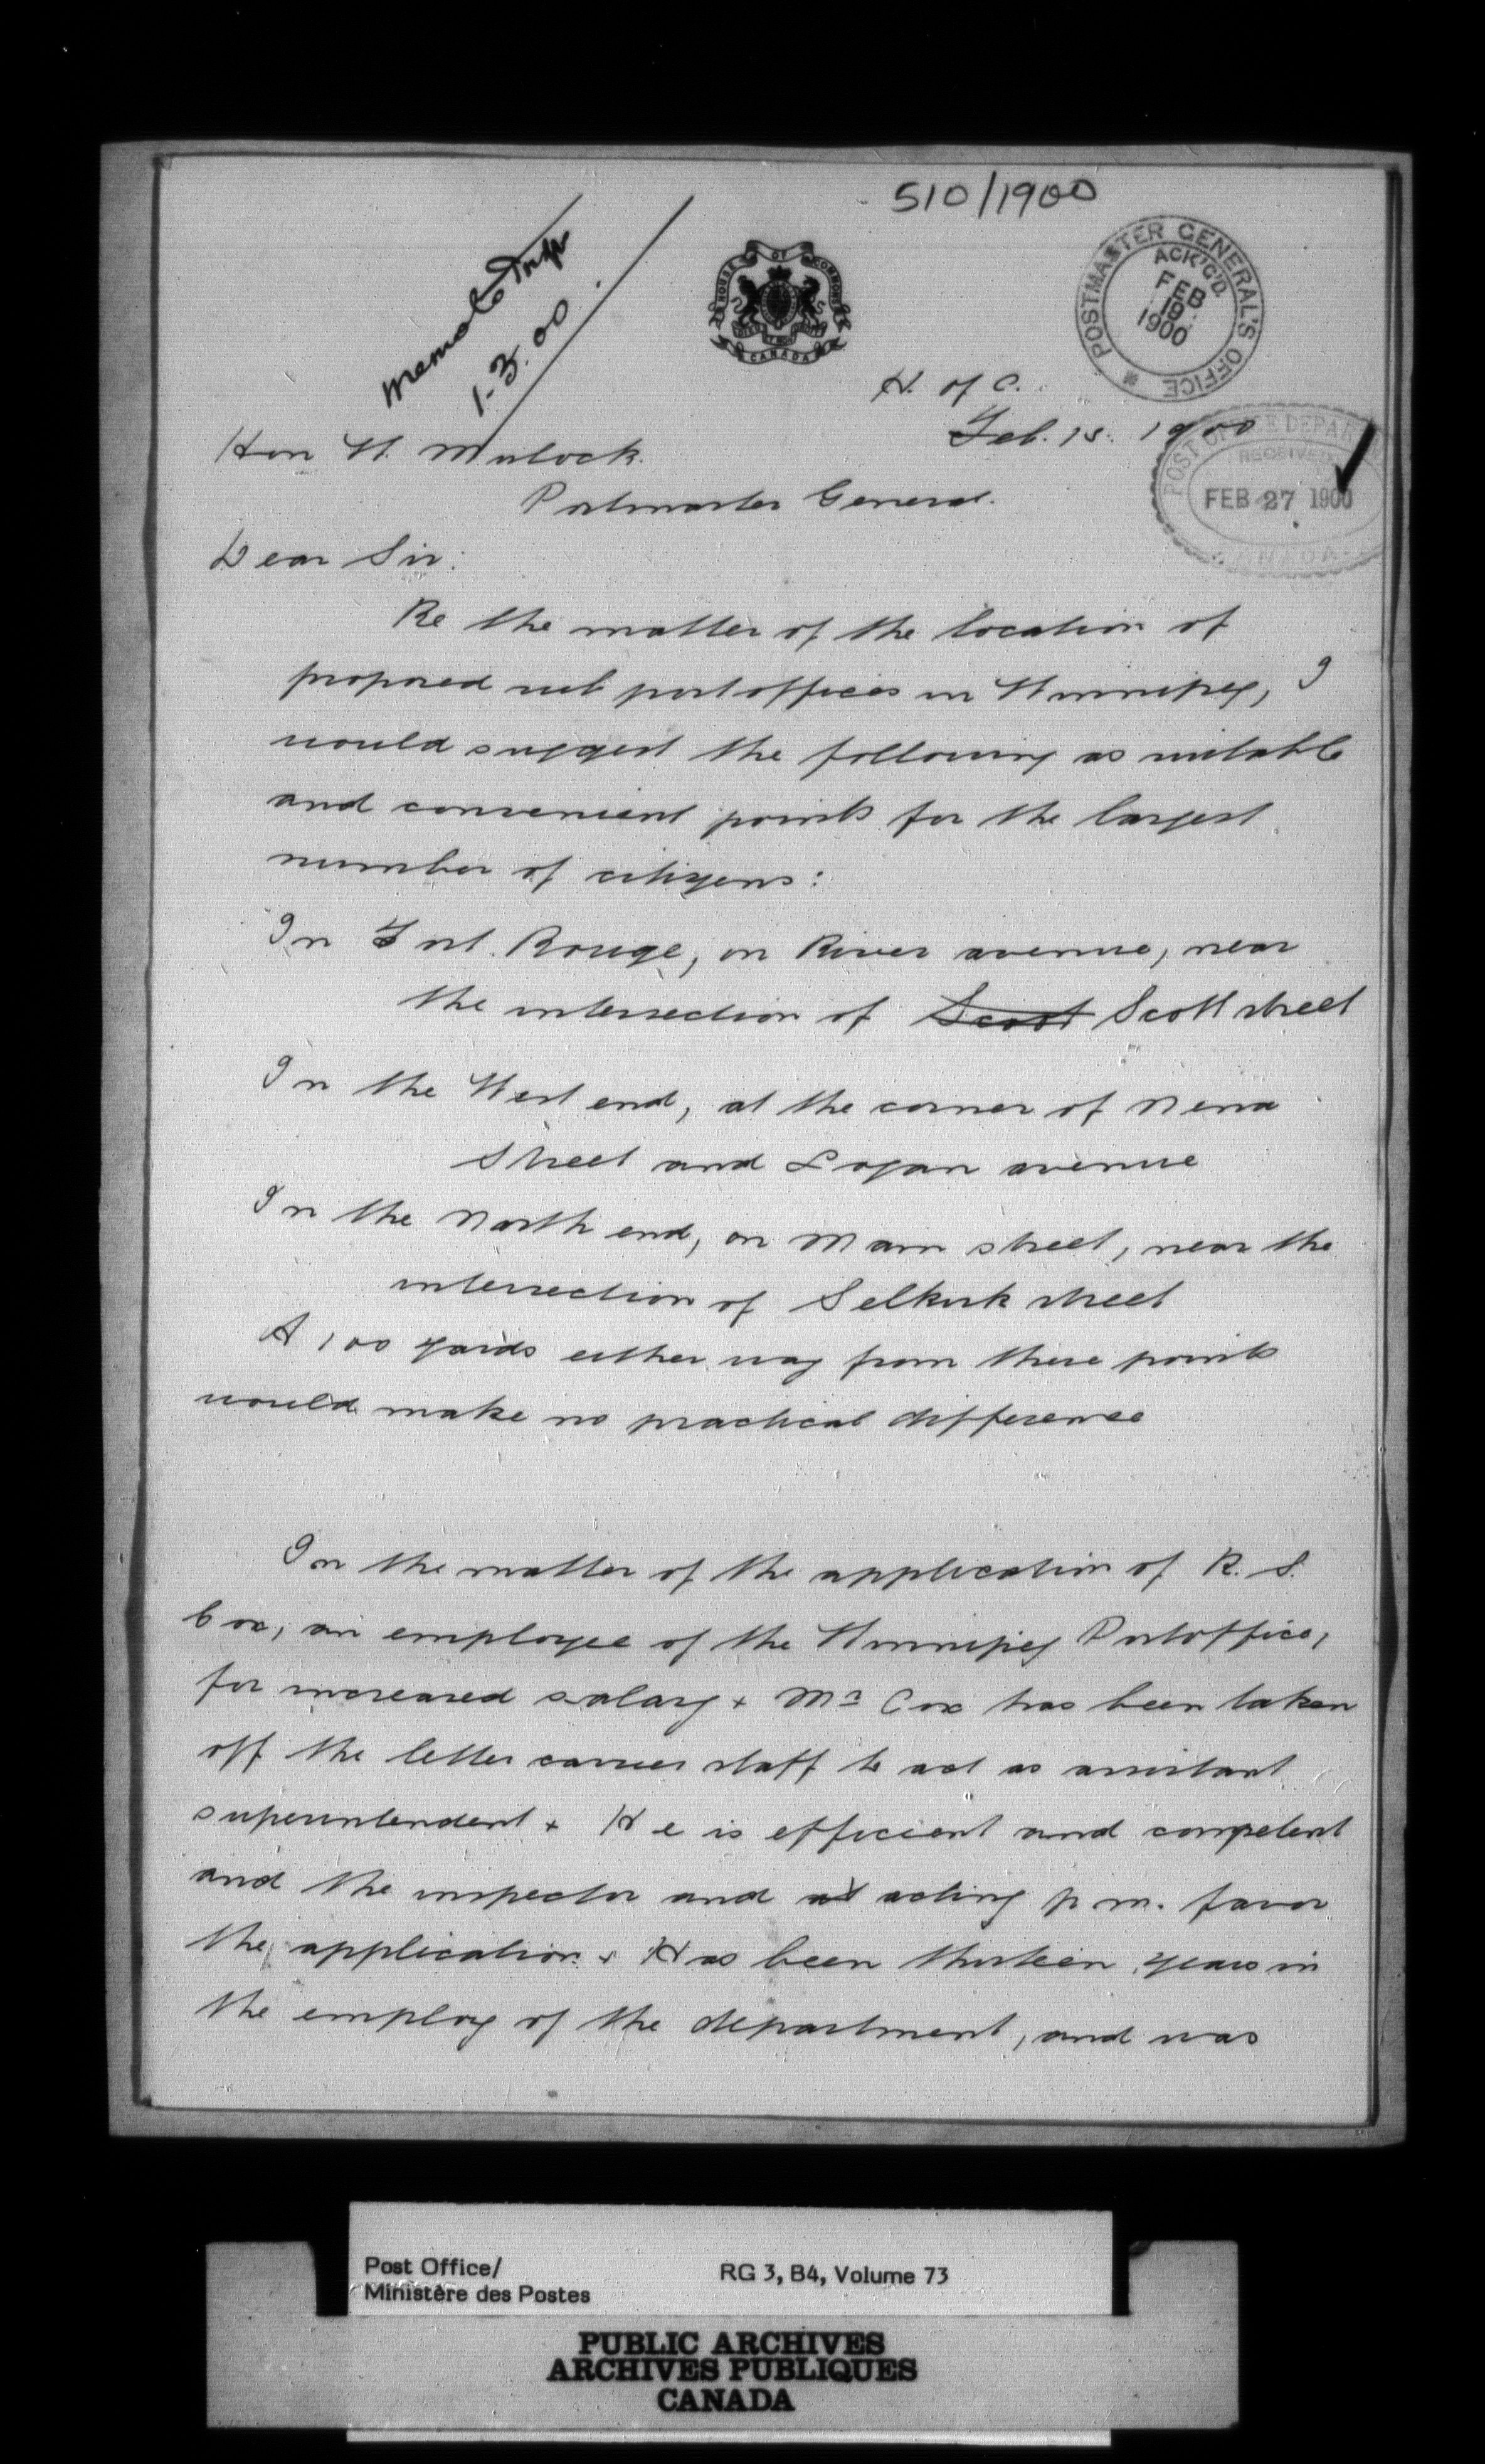 510/1900
Memo to Insp
1-3.00
HOUSE OF COMMONS
CANADA
POSTMASTER GENERAL'S OFFICE
ACK'G'D.
FEB
19
1900
H. of C.
Feb. 15. 1900
POST OFFICE DEPAR
RECEIVED
FEB 27 1900
CANADA
Hon W. Mulock.
Postmaster General.
Dear Sir:
Re the matter of the location of
proposed sub postoffices in Winnipeg, I
would suggest the following as suitable
and convenient points for the largest
number of citizens:
In Fort Rouge, on River avenue, near
the intersection of Scoot Scott street
In the West end, at the corner of Nena
street and Logan avenue
In the North end, on Main street, near the
intersection of Selkirk street
A 100 yards either way from these points
would make no practical difference
In the matter of the application of R. S.
Cox, an employee of the Winnipeg Postoffice,
for increased salary + Mr Cox has been taken
off the letter carrier staff to act as assistant
superintendent + He is efficient and competent
and the inspector and at acting p m. favor
the application + Has been thirteen years in
the employ of the department, and was
Post Office/
Ministère des Postes
RG 3, B4, Volume 73
PUBLIC ARCHIVES
ARCHIVES PUBLIQUES
CANADA